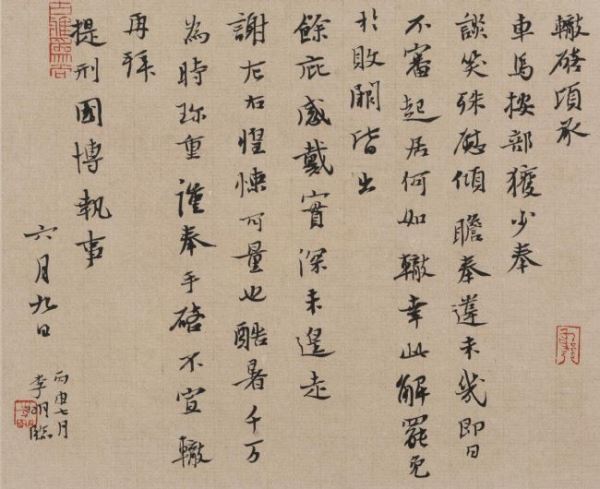 轍啓頃承
車馬按部獲少奉
談笑殊慰傾瞻奉違未幾即日
不審起居何如轍幸此解罷免
於敗闕皆出
餘庇感戴實深未遑走
謝左右惶悚可量也酷暑千万
為時珍重謹奉手啓不宣轍
再拜
提刑國博執事
六月九日
丙申七月
李明臨